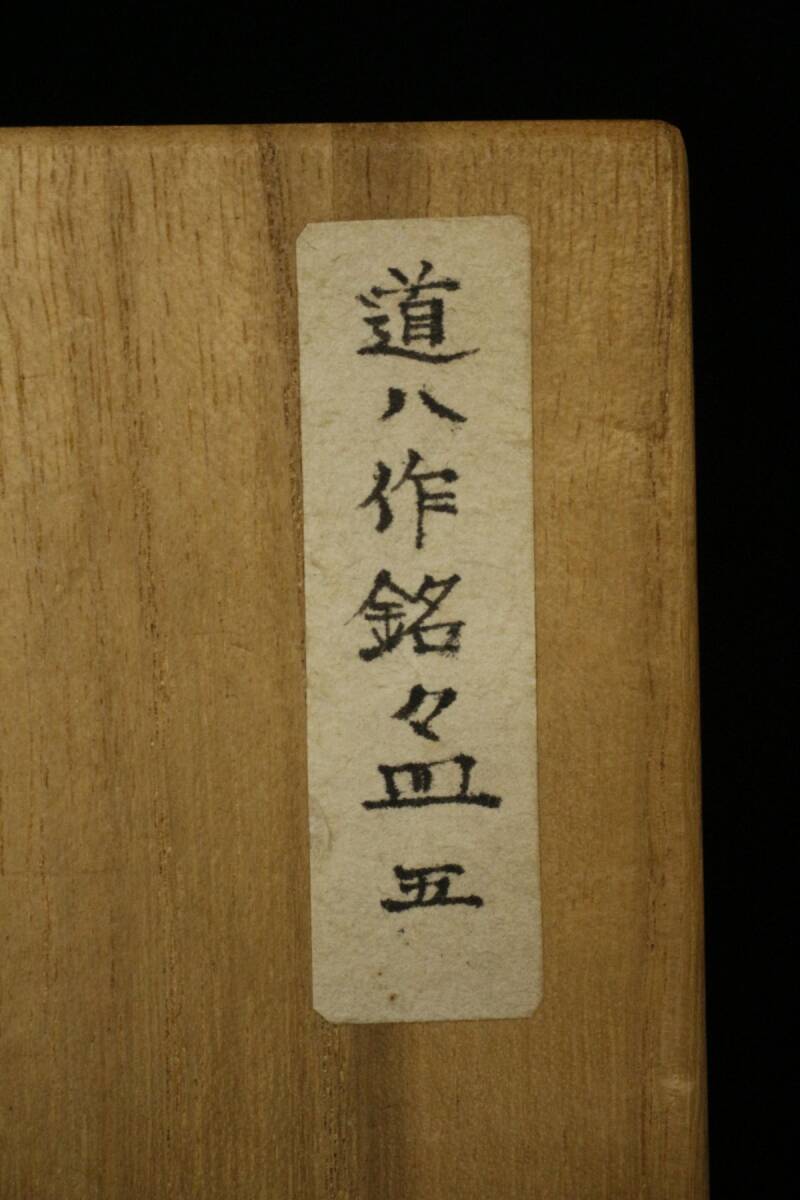 道八作銘々皿五